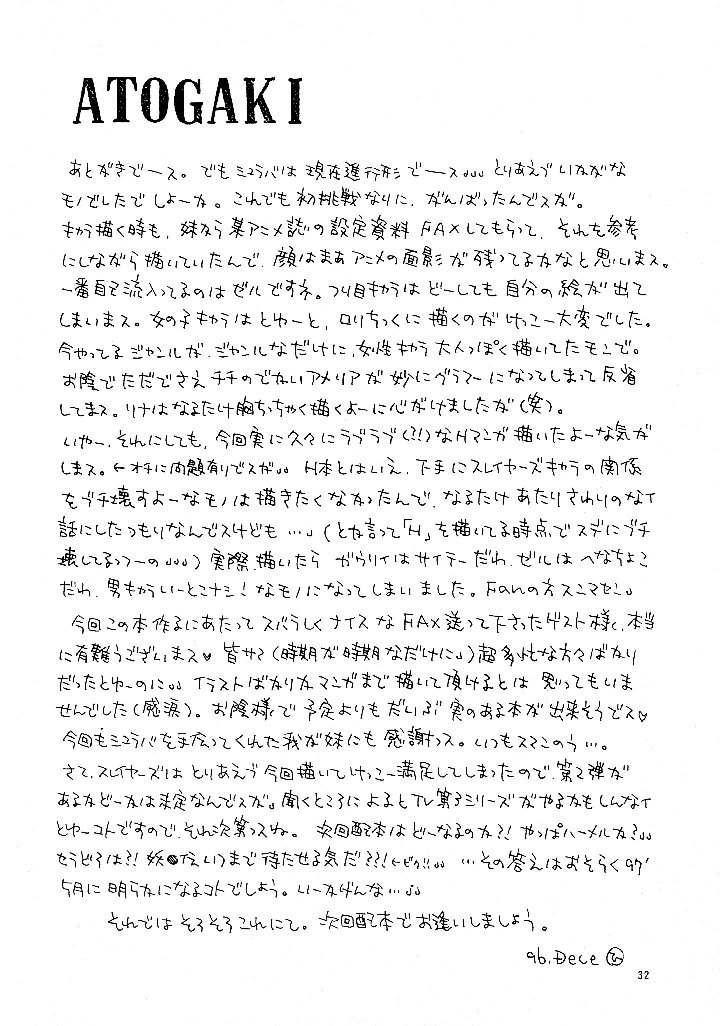 ATOGAKI
あとがきでース。でもシュラバは現在進行形でース。。。とりあえずいかがな
モノでしたでしょーか。これでも初挑戦なりに、がんばったんでスが。
キャラ描く時も、妹から某アニメ誌の設定資料FAXしてもらって、それを参考
にしながら描いていたんで、顔はまあアニメの面影が残ってるかなと思いまス。
一番自己流入ってるのはゼルですネ。つり目キャラはどーしても自分の絵が出て
しまいまス。女の子キャラはとゆーと、ロリちっくに描くのがけっこー大変でした。
今やってるジャンルが、ジャンルなだけに、女性キャラ大人っぽく描いてたモンで。
お陰でただでさえチチのでかいアメリアが妙にグラマーになってしまって反省
してまス。リナはなるたけ胸ちっちゃく描くよーに心がけましたが(笑)。
いやー、それにしても、今回実に久々にラブラブ(?!)なHマンガ描いたよーな気が
しまス。←オチに問題有りでスが。。H本とはいえ、下手にスレイヤーズキャラの関係
をブチ壊すよーなモノは描きたくなかったんで、なるたけあたりさわりのなイ
話にしたつもりなんでスけども…。(とか言って「H」を描いてる時点でスデにブチ
壊してるっつーの。。。)実際、描いたらガウリイはサイテーだわ、ゼルはへなちょこ
だわ、男キャラいーとこナシ!なモノになってしまいました。Fanの方スンマセン。
今回この本作るにあたってスバらしくナイスなFAX送って下さったゲスト様、本当
に有難うございまス♥皆サマ(時期が時期なだけに。)超多忙な方々ばかり
だったとゆーのに。。イラストばかりかマンガまで描いて頂けるとは思ってもいま
せんでした(感涙)。お陰様で予定よりもだいぶ実のある本が出来そうでス♥
今回もシュラバを手伝ってくれた我が妹にも感謝っス。いつもスマンのう…。
さて、スレイヤーズはとりあえず今回描いてけっこー満足してしまったので、第2弾が
あるかどーかは未定なんでスが。聞くところによるとTV第3シリーズがやるかもしんなイ
とゆーコトですので、それ次第っスね。次回配本はどーなるのか?!やっぱハーメルか?。。
セラどろは?!妖●伝いつまで待たせる気だ??!←ビク!!。。…その答えはおそらく97'
5月に明らかになるコトでしょう。いーかげんな…。。
それではそろそろこれにて。次回配本でお逢いしましょう。
96.Dece ひ
32